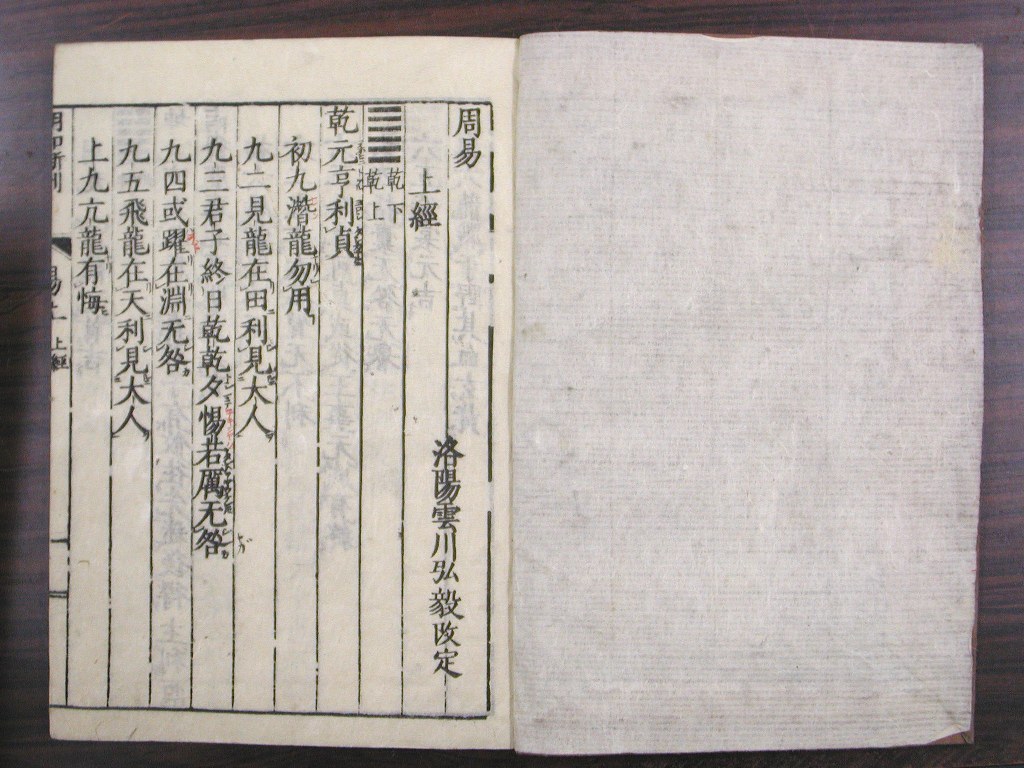 周易
上經
洛陽雲川弘毅改定
乾下
乾上
乾元亨利貞
初九潛龍勿用
九二見龍在田利見大人
九三君子終日乾乾夕惕若厲无咎
九四或躍在淵无咎
九五飛龍在天利見大人
上九亢龍有悔
易上 上經